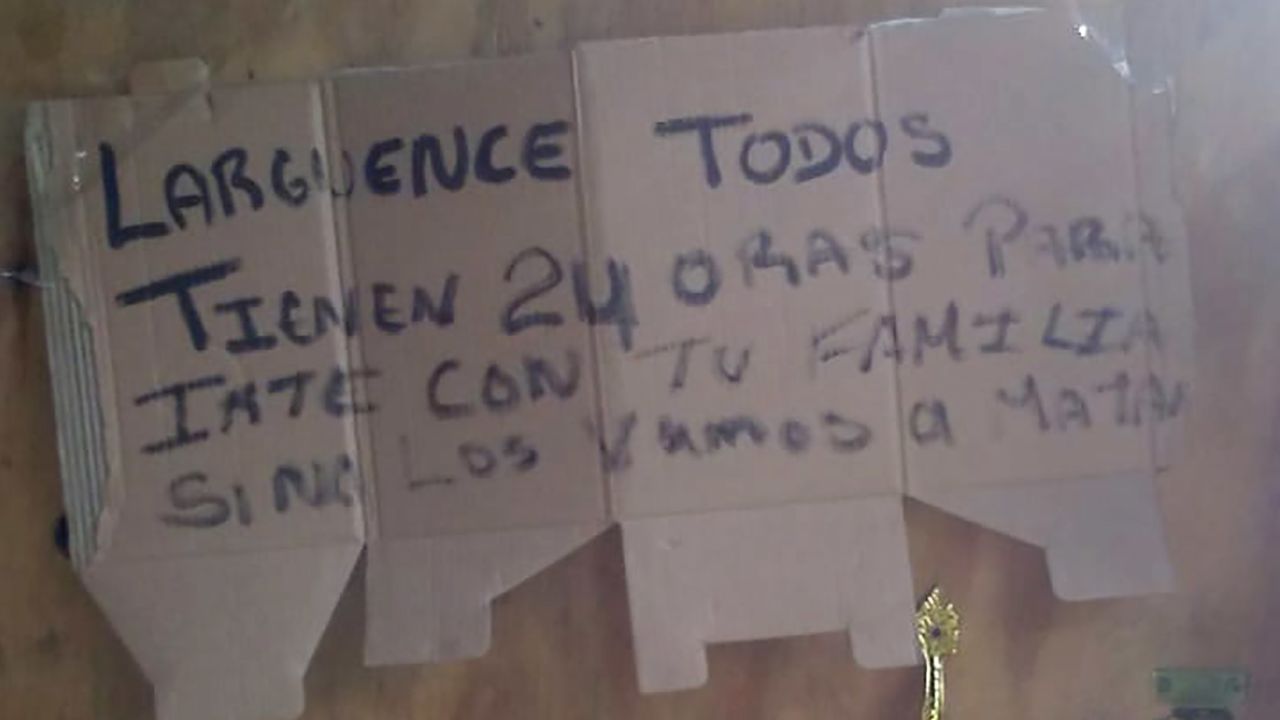 LARGUENCE TODOS
TIENEN 24 ORAS PARA
IRTE CON TU FAMILIA
SINO LOS VAMOS A MATAR